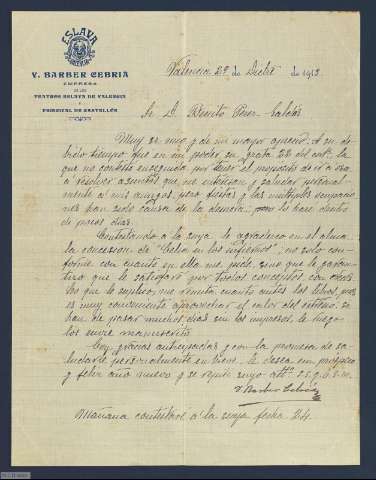 ESLAVA
VALENCIA
V. BARBER CEBRIA
EMPRESA
DE LOS
TEATROS ESLAVA DE VALENCIA
Y
PRINCIPAL DE CASTELLÓN
Valencia 29 de Dicbre de 1913
Sr D. Benito Perez Galdós
Muy Sr. mio y de mi mayor aprecio. A su de-
bido tiempo fue en mi poder su grata 22 del cnt. la
que no contesté enseguida por tener el proposito de ir á esa
á resolver asuntos que me interesan y saludar personal
mente á mis amigos, pero fiestas y las multiples ocupacio
nes han sido causa de la demora, pero lo haré dentro
de pocos dias.
Contestando á la suya le agradezco en el alma
la concesion de "Celia en los infiernos", no solo con-
forme con cuanto en ella me pide, sino que le garan-
tizo que le satisfaré por todos conceptos con creces
Lo que le suplico, me remita cuanto antes los libros, pues
es muy conveniente aprovechar el calor del estreno, si
han de pasar muchos dias sin los impresos, le ruego
los envie manuscritos.
Doy gracias anticipadas y con la promesa de sa-
ludarle personalmente en breve, le desea un prospero
y feliz año nuevo y se repite suyo afftº S.S. q. b. s. m.
V. Barber Cebriá
Mañana contestaré á la suya fecha 24.